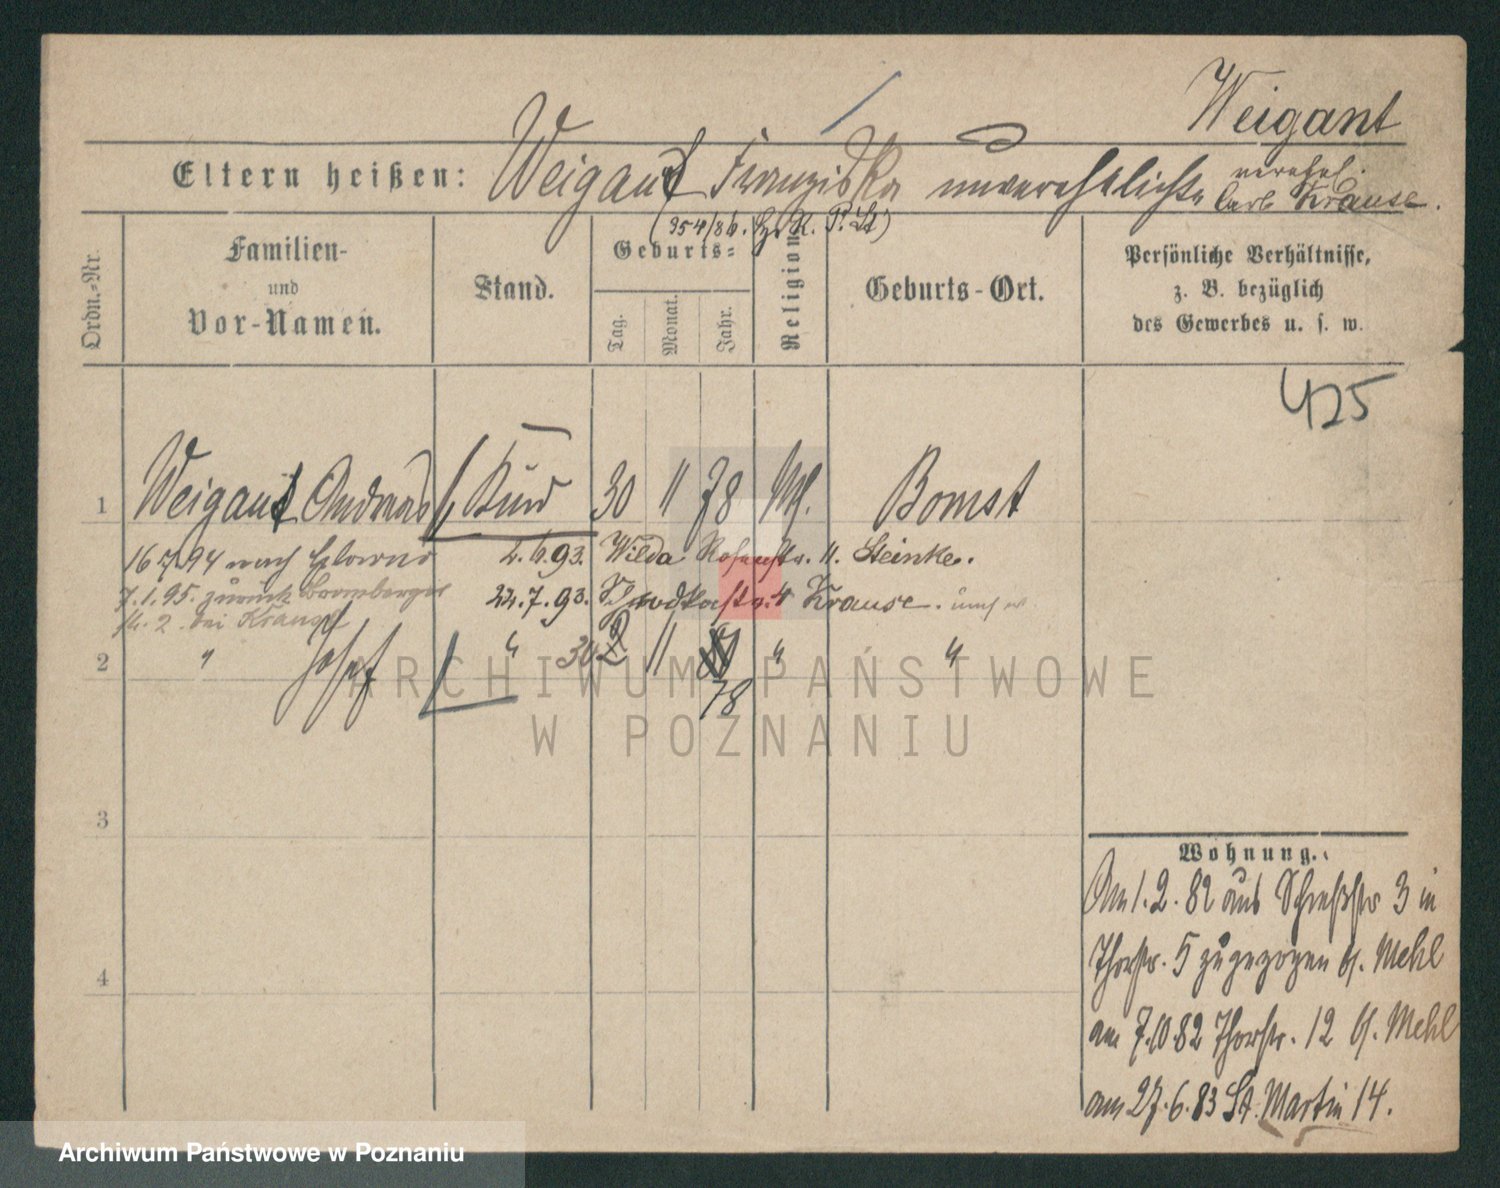 Weigant
Eltern heißen: Weigant Franziska unverehelichte verehel.
Carl Krause.
(954/86. P. St)
Ordn.-Nr.
Familien-
und
Vor-Namen.
Stand.
Geburts-
Tag.
Monat.
Jahr.
Religion
Geburts-Ort.
Persönliche Verhältnisse,
z. B. bezüglich
des Gewerbes u. s. w.
425
1 Weigant Andreas Kind 30 11 78 Bomst
16.7.94 nach 2.6.93. Wilda Rosenstr. 11. Steinke.
7.1.95. zurück Bromberger 22.7.93. 4 Krause.
14.2. bei Krause
2 " Josef " 30 11 78 " "
3
4
Wohnung.
Am 1.2.82 aus Schießstr 3 in
Thorstr. 5 zugezogen b. Mehl
am 7.10.82 Thorstr. 12 b. Mehl
am 27.6.83 St. Martin 14.
ARCHIWUM PAŃSTWOWE
W POZNANIU
Archiwum Państwowe w Poznaniu